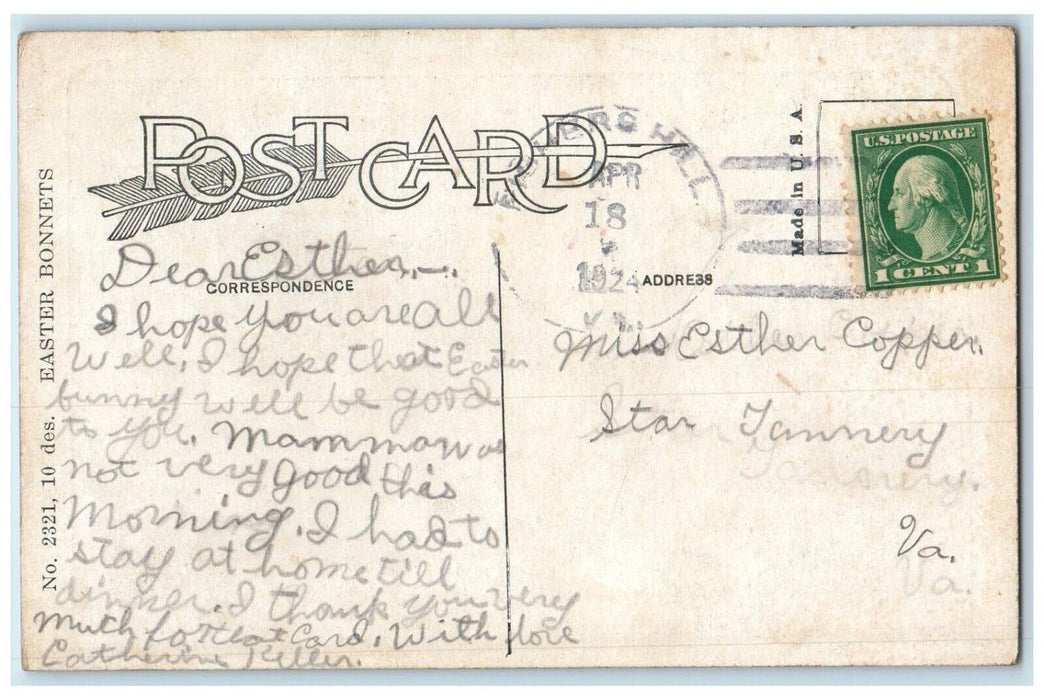 No. 2321, 10 des. EASTER BONNETS
POST CARD
FISHERS HILL
APR
18
1924
VA.
Made in U. S. A.
U.S. POSTAGE
1 CENT 1
CORRESPONDENCE
Dear Esther,—.
I hope you are all
well, I hope that Easter
bunny will be good
to you. Mammaw
not very good this
Morning. I had to
stay at home till
dinner. I thank you very
much for that Card. With love
Catherine Keller.
ADDRESS
Miss Esther Copper,
Star Tannery
Tannery.
Va.
Va.